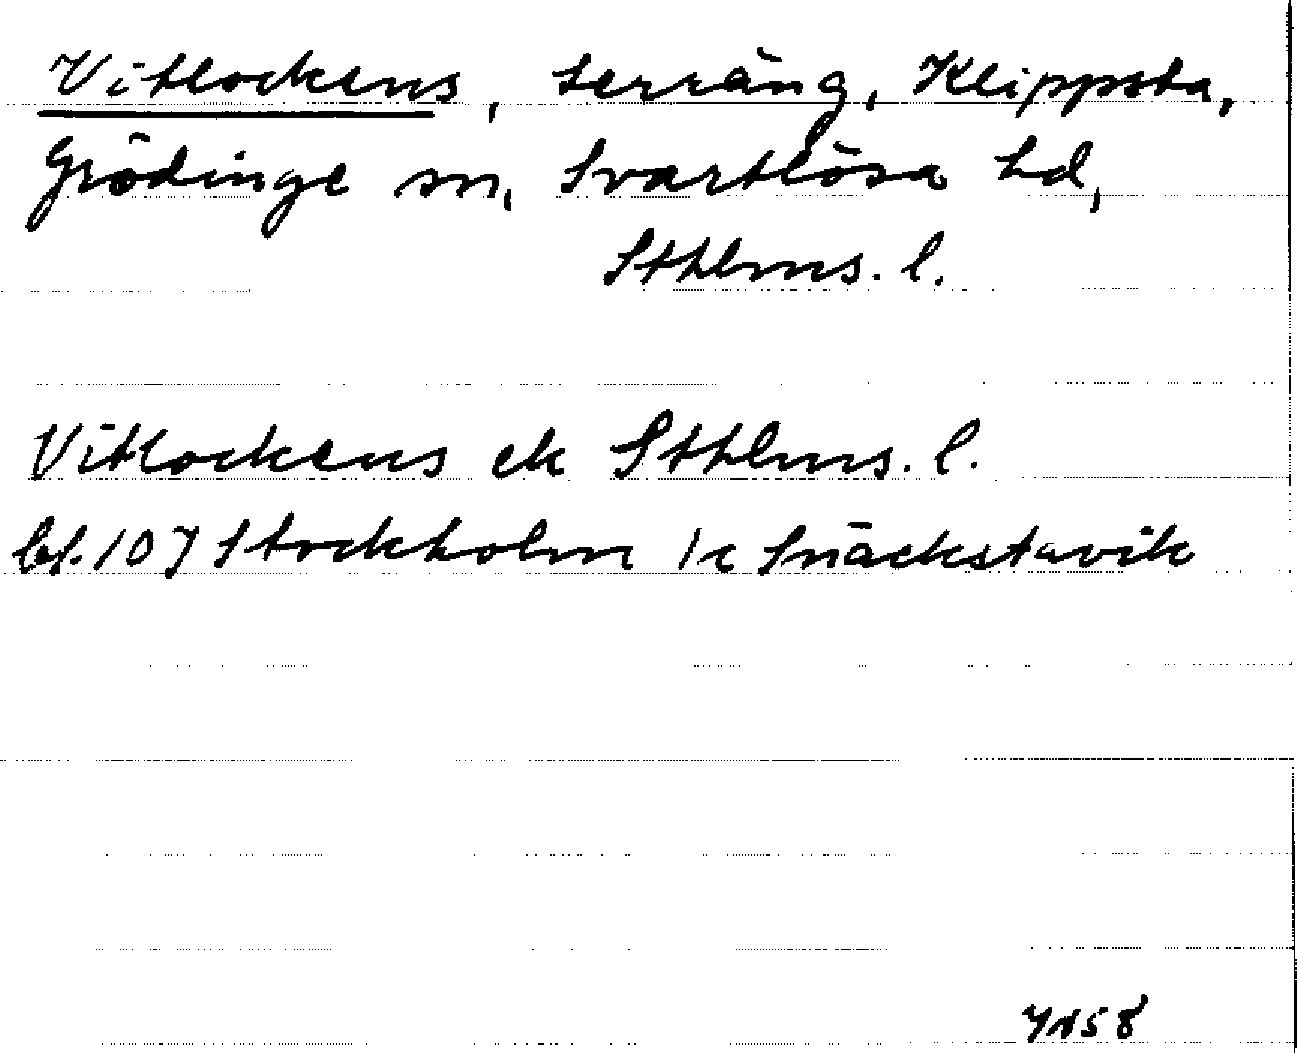 Vitlockens, terräng, Klippsta,
Grödinge sn, Svartlösa hd,
Sthlms. l.
Vitlockens ek Sthlms. l.
bl. 107 Stockholm 1c Snäckstavik